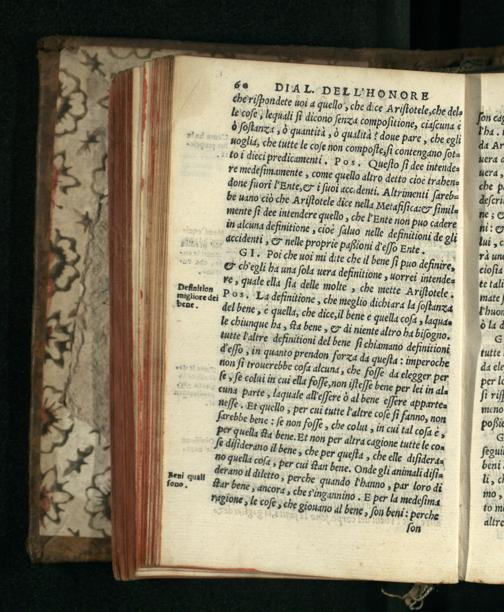 60 DIAL. DELL'HONORE
che rispondete uoi a quello, che dice Aristotele, che del-
le cose, lequali si dicono senza compositione, ciascuna è
ò sostanza, ò quantità, ò qualità? doue pare, che egli
uoglia, che tutte le cose non composte, si contengano sot-
to i dieci predicamenti. Pos. Questo si dee intende-
re medesimamente, come quello altro detto cioè trahen-
done fuori l'Ente, & i suoi accidenti. Altrimenti sareb-
be uano ciò che Aristotele dice nella Metafisica: & simil-
mente si dee intendere quello, che l'Ente non può cadere
in alcuna definitione, cioè saluo nelle definitioni de gli
accidenti, & nelle proprie passioni d'esso Ente.
GI. Poi che uoi mi dite che il bene si può definire,
& ch'egli ha una sola uera definitione, uorrei intende-
re, quale ella sia delle molte, che mette Aristotele.
Definition
migliore del
bene.
Pos. La definitione, che meglio dichiara la sostanza
del bene, è quella, che dice, il bene è quella cosa, laqua-
le chiunque ha, sta bene, & di niente altro ha bisogno.
tutte l'altre definitioni del bene si chiamano definitioni
d'esso, in quanto prendon forza da questa: imperoche
non si trouerebbe cosa alcuna, che fosse da elegger per
se, se colui in cui ella fosse, non istesse bene per lei in al-
cuna parte, laquale all'essere ò al bene essere apparte-
nesse. Et quello, per cui tutte l'altre cose si fanno, non
sarebbe bene: se non fosse, che colui, in cui tal cosa è,
per quella sta bene. Et non per altra cagione tutte le co-
se disiderano il bene, che per questa, che elle disidera-
no quella cosa, per cui stan bene. Onde gli animali disi-
Beni quali
sono.
derano il diletto, perche quando l'hanno, par loro di
star bene, ancora, che s'ingannino. E per la medesima
ragione, le cose, che giouano al bene, son beni: perche
son